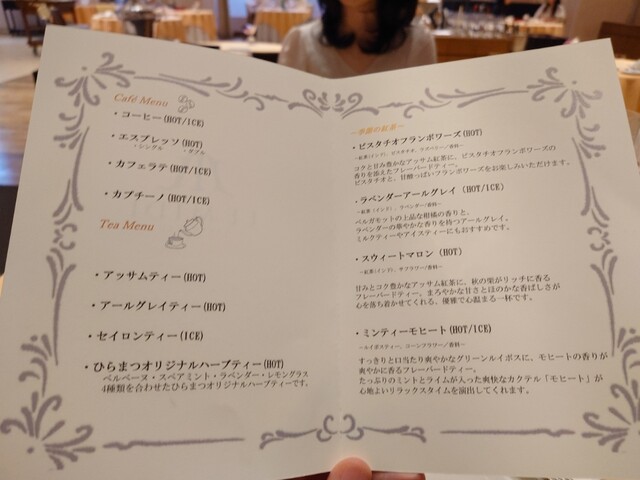 Café Menu
・コーヒー(HOT/ICE)
・エスプレッソ(HOT)
・シングル ・ダブル
・カフェラテ(HOT/ICE)
・カプチーノ(HOT/ICE)
Tea Menu
・アッサムティー(HOT)
・アールグレイティー(HOT)
・セイロンティー(ICE)
・ひらまつオリジナルハーブティー(HOT)
ベルベーヌ・スペアミント・ラベンダー・レモングラス
4種類を合わせたひらまつオリジナルハーブティーです。
～季節の紅茶～
・ピスタチオフランボワーズ(HOT)
コクと甘み豊かなアッサム紅茶に、ピスタチオフランボワーズの
香りを添えたフレーバードティー。
ピスタチオと、甘酸っぱいフランボワーズをお楽しみいただけます。
・ラベンダーアールグレイ (HOT/ICE)
～紅茶(インド)、ラベンダー/香料～
ベルガモットの上品な柑橘の香りと、
ラベンダーの華やかな香りを持つアールグレイ。
ミルクティーやアイスティーにもおすすめです。
・スウィートマロン (HOT)
～紅茶(インド)、サフラワー/香料～
甘みとコク豊かなアッサム紅茶に、秋の栗がリッチに香る
フレーバードティー。まろやかな甘さとほのかな香ばしさが
心を落ち着かせてくれる、優雅で心温まる一杯です。
・ミンティーモヒート(HOT/ICE)
～ルイボスティー、コーンフラワー/香料～
すっきりと口当たり爽やかなグリーンルイボスに、モヒートの香りが
爽やかに香るフレーバードティー。
たっぷりのミントとライムが入った爽快なカクテル「モヒート」が
心地よいリラックスタイムを演出してくれます。